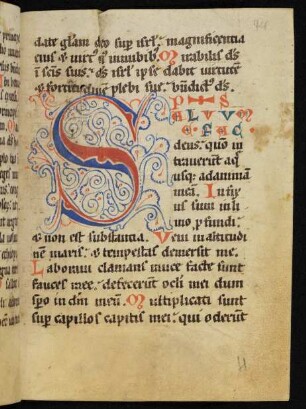 date gl̄am deo sup̄ isrl̄ magnificentia
eius ⁊ uirt' ei' in nubib'. Mirabilis ds̄
in sc̄is suis. ds̄ isrl̄ ipse dabit uirtutē
⁊ fortitudinē plebi sue. bn̄dict' ds̄.
SALVVM
ME FAC
deus. quō in
trauerunt aq̄
usq; ad animā
meā. Infix'
sus sum in li
mo p̄fundi.
⁊ non est substantia. Veni in altitudi
nē maris. ⁊ tempestas demersit me.
Laboraui clamans rauce facte sunt
fauces mee. defecerūt oc̄li mei dum
sp̄o in dm̄ meū. Multiplicati sunt
sup̄ capillos capitis mei. qui oderūt